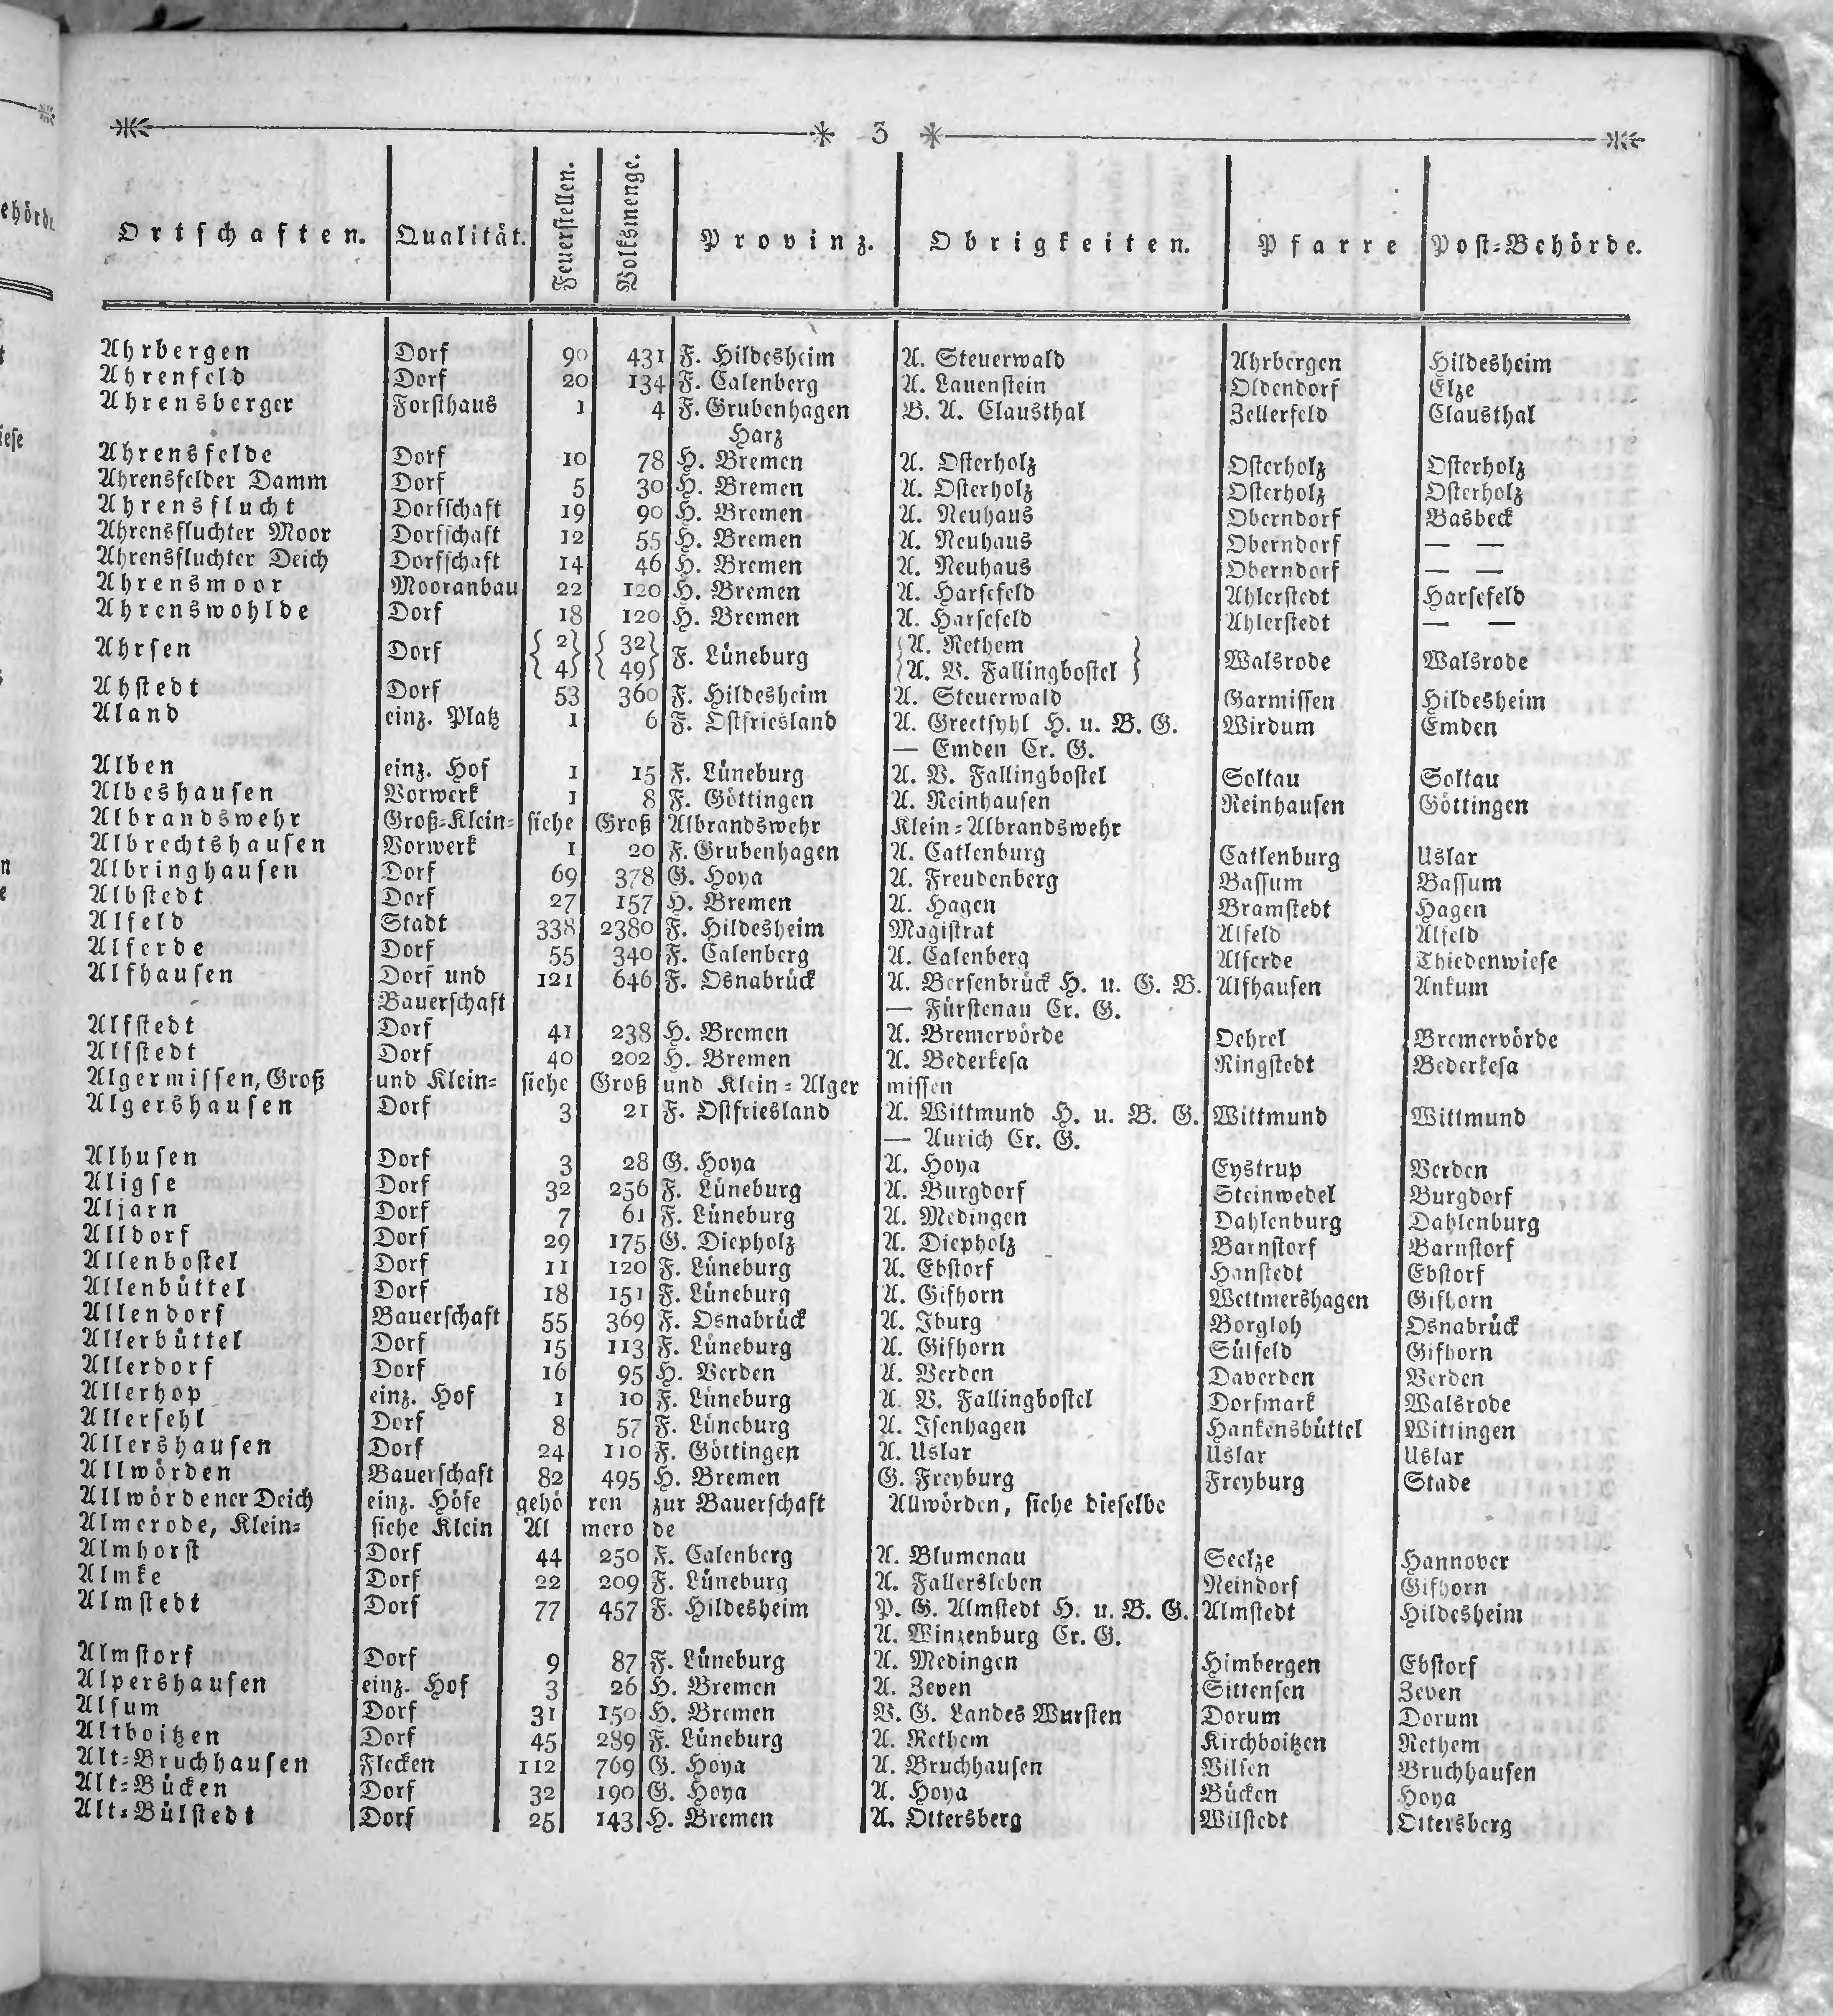 3
Ortschaften. Qualität. Feuerstellen. Volksmenge. Provinz. Obrigkeiten. Pfarre Post-Behörde.
Ahrbergen Dorf 90 431 F. Hildesheim A. Steuerwald Ahrbergen Hildesheim
Ahrenfeld Dorf 20 134 F. Calenberg A. Lauenstein Oldendorf Elze
Ahrensberger Forsthaus 1 4 F. Grubenhagen B. A. Clausthal Zellerfeld Clausthal
Harz
Ahrensfelde Dorf 10 78 H. Bremen A. Osterholz Osterholz Osterholz
Ahrensfelder Damm Dorf 5 30 H. Bremen A. Osterholz Osterholz Osterholz
Ahrensflucht Dorfschaft 19 90 H. Bremen A. Neuhaus Oberndorf Basbeck
Ahrensfluchter Moor Dorfschaft 12 55 H. Bremen A. Neuhaus Oberndorf — —
Ahrensfluchter Deich Dorfschaft 14 46 H. Bremen A. Neuhaus Oberndorf — —
Ahrensmoor Mooranbau 22 120 H. Bremen A. Harsefeld Ahlerstedt Harsefeld
Ahrenswohlde Dorf 18 120 H. Bremen A. Harsefeld Ahlerstedt — —
Ahrsen Dorf {2} {32} F. Lüneburg {A. Rethem} Walsrode Walsrode
{4} {49} {A. V. Fallingbostel}
Ahstedt Dorf 53 360 F. Hildesheim A. Steuerwald Garmissen Hildesheim
Aland einz. Platz 1 6 F. Ostfriesland A. Greetsyhl H. u. B. G. Wirdum Emden
— Emden Cr. G.
Alben einz. Hof 1 15 F. Lüneburg A. V. Fallingbostel Soltau Soltau
Albeshausen Vorwerk 1 8 F. Göttingen A. Reinhausen Reinhausen Göttingen
Albrandswehr Groß-Klein- siehe Groß Albrandswehr Klein-Albrandswehr
Albrechtshausen Vorwerk 1 20 F. Grubenhagen A. Catlenburg Catlenburg Uslar
Albringhausen Dorf 69 378 G. Hoya A. Freudenberg Bassum Bassum
Albstedt Dorf 27 157 H. Bremen A. Hagen Bramstedt Hagen
Alfeld Stadt 338 2380 F. Hildesheim Magistrat Alfeld Alfeld
Alferde Dorf 55 340 F. Calenberg A. Calenberg Alferde Thiedenwiese
Alfhausen Dorf und 121 646 F. Osnabrück A. Bersenbrück H. u. G. B. Alfhausen Ankum
Bauerschaft — Fürstenau Cr. G.
Alfstedt Dorf 41 238 H. Bremen A. Bremervörde Oehrel Bremervörde
Alfstedt Dorf 40 202 H. Bremen A. Bederkesa Ringstedt Bederkesa
Algermissen, Groß und Klein- siehe Groß und Klein-Alger missen
Algershausen Dorf 3 21 F. Ostfriesland A. Wittmund H. u. B. G. Wittmund Wittmund
— Aurich Cr. G.
Alhusen Dorf 3 28 G. Hoya A. Hoya Eystrup Verden
Aligse Dorf 32 256 F. Lüneburg A. Burgdorf Steinwedel Burgdorf
Aljarn Dorf 7 61 F. Lüneburg A. Medingen Dahlenburg Dahlenburg
Alldorf Dorf 29 175 G. Diepholz A. Diepholz Barnstorf Barnstorf
Allenbostel Dorf 11 120 F. Lüneburg A. Ebstorf Hanstedt Ebstorf
Allenbüttel Dorf 18 151 F. Lüneburg A. Gifhorn Wettmershagen Gifhorn
Allendorf Bauerschaft 55 369 F. Osnabrück A. Iburg Borgloh Osnabrück
Allerbüttel Dorf 15 113 F. Lüneburg A. Gifhorn Sülfeld Gifhorn
Allerdorf Dorf 16 95 H. Verden A. Verden Daverden Verden
Allerhop einz. Hof 1 10 F. Lüneburg A. V. Fallingbostel Dorfmark Walsrode
Allersehl Dorf 8 57 F. Lüneburg A. Isenhagen Hankensbüttel Wittingen
Allershausen Dorf 24 110 F. Göttingen A. Uslar Uslar Uslar
Allwörden Bauerschaft 82 495 H. Bremen G. Freyburg Freyburg Stade
Allwördener Deich einz. Höfe gehö ren zur Bauerschaft Allwörden, siehe dieselbe
Almerode, Klein- siehe Klein Al mero de
Almhorst Dorf 44 250 F. Calenberg A. Blumenau Seelze Hannover
Almke Dorf 22 209 F. Lüneburg A. Fallersleben Neindorf Gifhorn
Almstedt Dorf 77 457 F. Hildesheim P. G. Almstedt H. u. B. G. Almstedt Hildesheim
A. Winzenburg Cr. G.
Almstorf Dorf 9 87 F. Lüneburg A. Medingen Himbergen Ebstorf
Alpershausen einz. Hof 3 26 H. Bremen A. Zeven Sittensen Zeven
Alsum Dorf 31 150 H. Bremen V. G. Landes Wursten Dorum Dorum
Altboitzen Dorf 45 289 F. Lüneburg A. Rethem Kirchboitzen Rethem
Alt-Bruchhausen Flecken 112 769 G. Hoya A. Bruchhausen Vilsen Bruchhausen
Alt-Bücken Dorf 32 190 G. Hoya A. Hoya Bücken Hoya
Alt-Bülstedt Dorf 25 143 H. Bremen A. Ottersberg Wilstedt Ottersberg